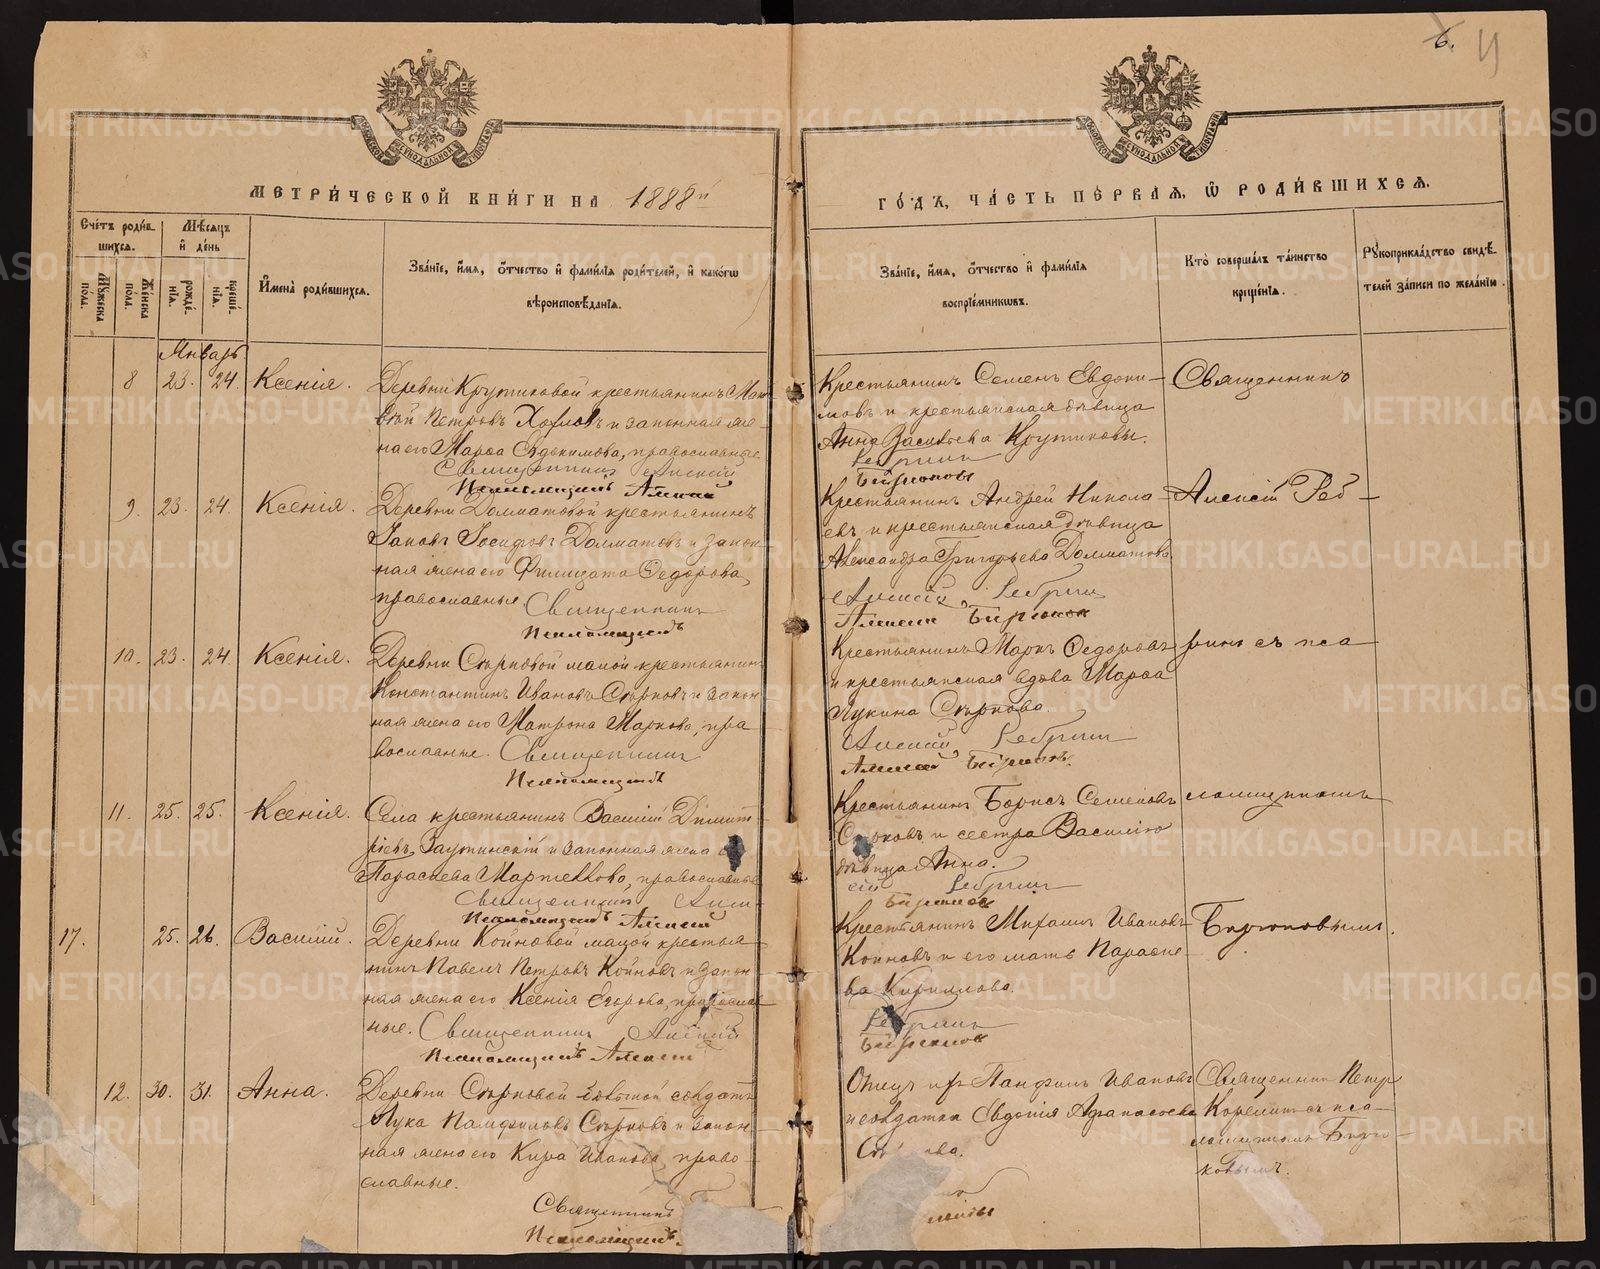 6.
МЕТРИ́ЧЕСКОЙ КНИ́ГИ НА 1888й
ГО́ДЪ, ЧА́СТЬ ПЕ́РВАЯ, Ѡ РОДИ́ВШИХСЯ.
Сче́тъ роди́в-
шихся.
Мѣ́сяцъ
и̑ де́нь
Мꙋ́жеска
по́ла.
Же́нска
по́ла.
рожде́-
нїя.
креще́-
нїя.
И̑мена̀ роди́вшихся.
Зва́нїе, и̑́мя, о̑́тчество и̑ фами́лїя роди́телей, и̑ како́гѡ
вѣроисповѣ́данїя.
Зва́нїе, и̑́мя, о̑́тчество и̑ фами́лїя
воспрїе́мникѡвъ.
Кто̀ соверша́лъ та́инство
креще́нїя.
Рꙋкоприкла́дство свидѣ́-
телей за́писи по жела́нїю.
Январь
8 23. 24. Ксенія.
Деревни Крутиковой крестьянинъ Мат-
вѣй Петровъ и законная же-
на его Марѳа Евдокимова, православные
Священникъ Алексій
Псаломщикъ Алексій
Крестьянинъ Семенъ Евдоки-
мовъ и крестьянская дѣвица
Анна Васильева Крутиковы.
Ребринъ
Бирюковъ
Священникъ
9. 23. 24. Ксенія.
Деревни Долматовой крестьянинъ
Іаковъ Іосифовъ Долматовъ и закон-
ная жена его Филицата Ѳедорова,
православные. Священникъ
Псаломщикъ
Крестьянинъ Андрей Никола-
евъ и крестьянская дѣвица
Александра Григорьева Долматова
Алексій Ребринъ
Алексій Бирюковъ
Алексій Реб-
10. 23. 24. Ксенія.
Деревни Сѣрковой малой крестьянинъ
Константинъ Ивановъ Сѣрковъ и закон
ная жена его Матрона Маркова, пра
вославные. Священникъ
Псаломщикъ
Крестьянинъ Маркъ Ѳедоровъ
и крестьянская вдова Марѳа
Лукина Сѣркова.
Алексій Ребринъ
Алексій Бирюковъ.
ринъ съ пса
11. 25. 25. Ксенія.
Села крестьянинъ Василій Димит-
ріевъ и законная жена его
Параскева православные
Священникъ Алек-
Псаломщикъ Алексій
Крестьянинъ Борисъ Семеновъ
Сѣрковъ и сестра Василію
дѣвица Анна.
сій Ребринъ
Бирюковъ
ломщикомъ
17. 25. 26. Василій.
Деревни Койновой малой крестья-
нинъ Павелъ Петровъ Койновъ и закон
ная жена его Ксенія Егорова, православ
ные. Священникъ Алексій
Псаломщикъ Алексій
Крестьянинъ Михаилъ Ивановъ
Койновъ и его мать Параске
ва Кириллова.
Ребринъ
Бирюковъ
Бирюковымъ.
12. 30. 31. Анна.
Деревни Сѣрковой солдатъ
Лука Памфиловъ Сѣрковъ и закон-
ная жена его Кира Иванова, право-
славные.
Священникъ
Псаломщикъ.
Отецъ Панфилъ Ивановъ
и солдатка Евдокія Аѳанасьева
Священникъ Петръ
съ пса-
ломщикомъ Бирю-
ковымъ.
METRIKI.GASO-URAL.RU